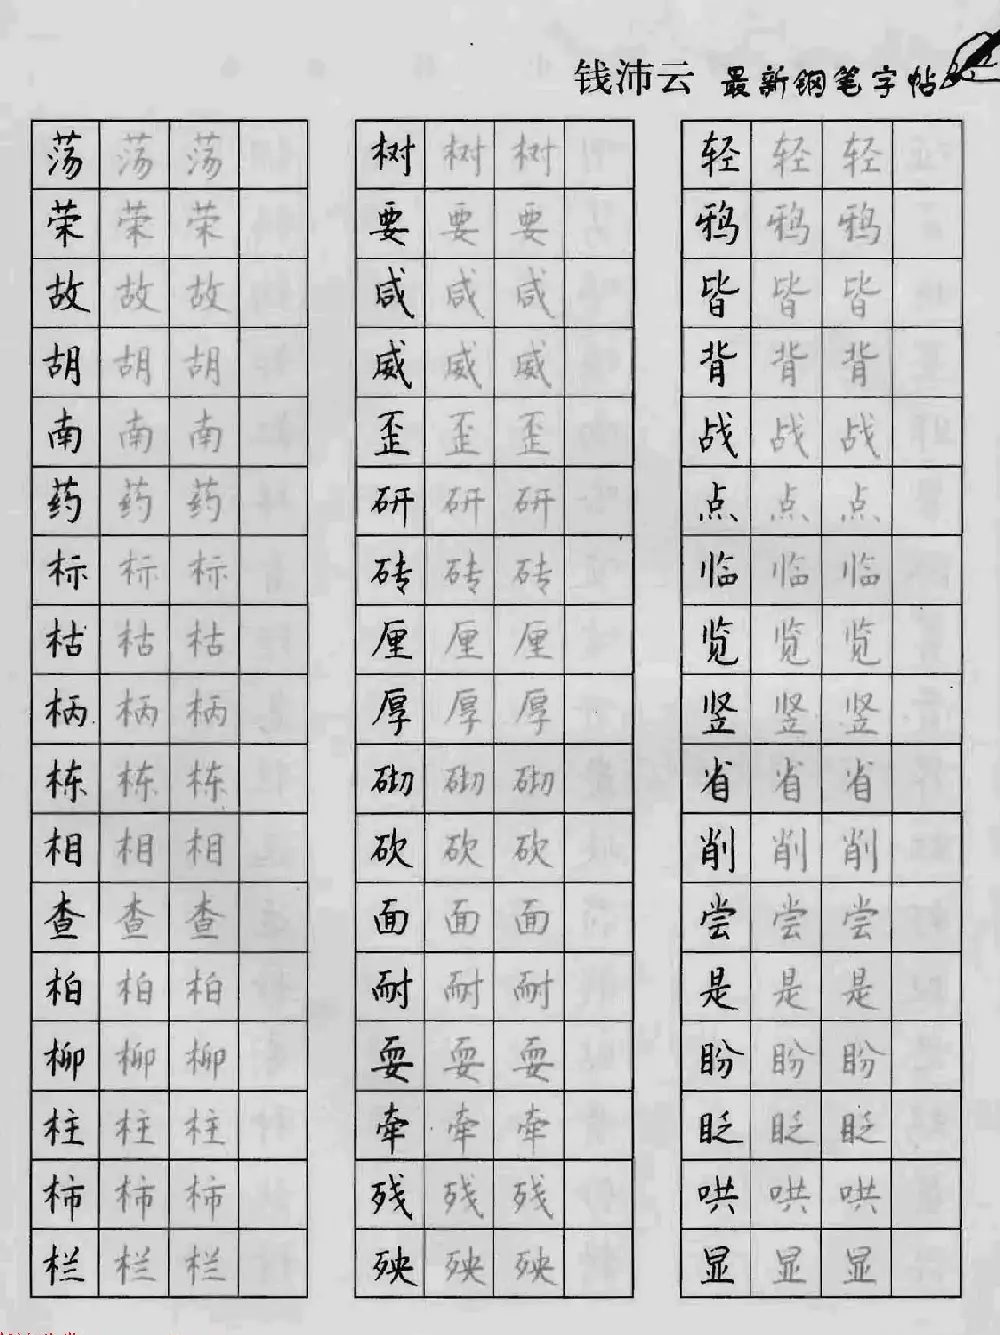 钱沛云 最新钢笔字帖
荡荡荡 树树树 轻轻轻
荣荣荣 要要要 鸦鸦鸦
故故故 咸咸咸 皆皆皆
胡胡胡 威威威 背背背
南南南 歪歪歪 战战战
药药药 研研研 点点点
标标标 砖砖砖 临临临
枯枯枯 厘厘厘 览览览
柄柄柄 厚厚厚 竖竖竖
栋栋栋 砌砌砌 省省省
相相相 砍砍砍 削削削
查查查 面面面 尝尝尝
柏柏柏 耐耐耐 是是是
柳柳柳 耍耍耍 盼盼盼
柱柱柱 牵牵牵 眨眨眨
柿柿柿 残残残 哄哄哄
栏栏栏 殃殃殃 显显显